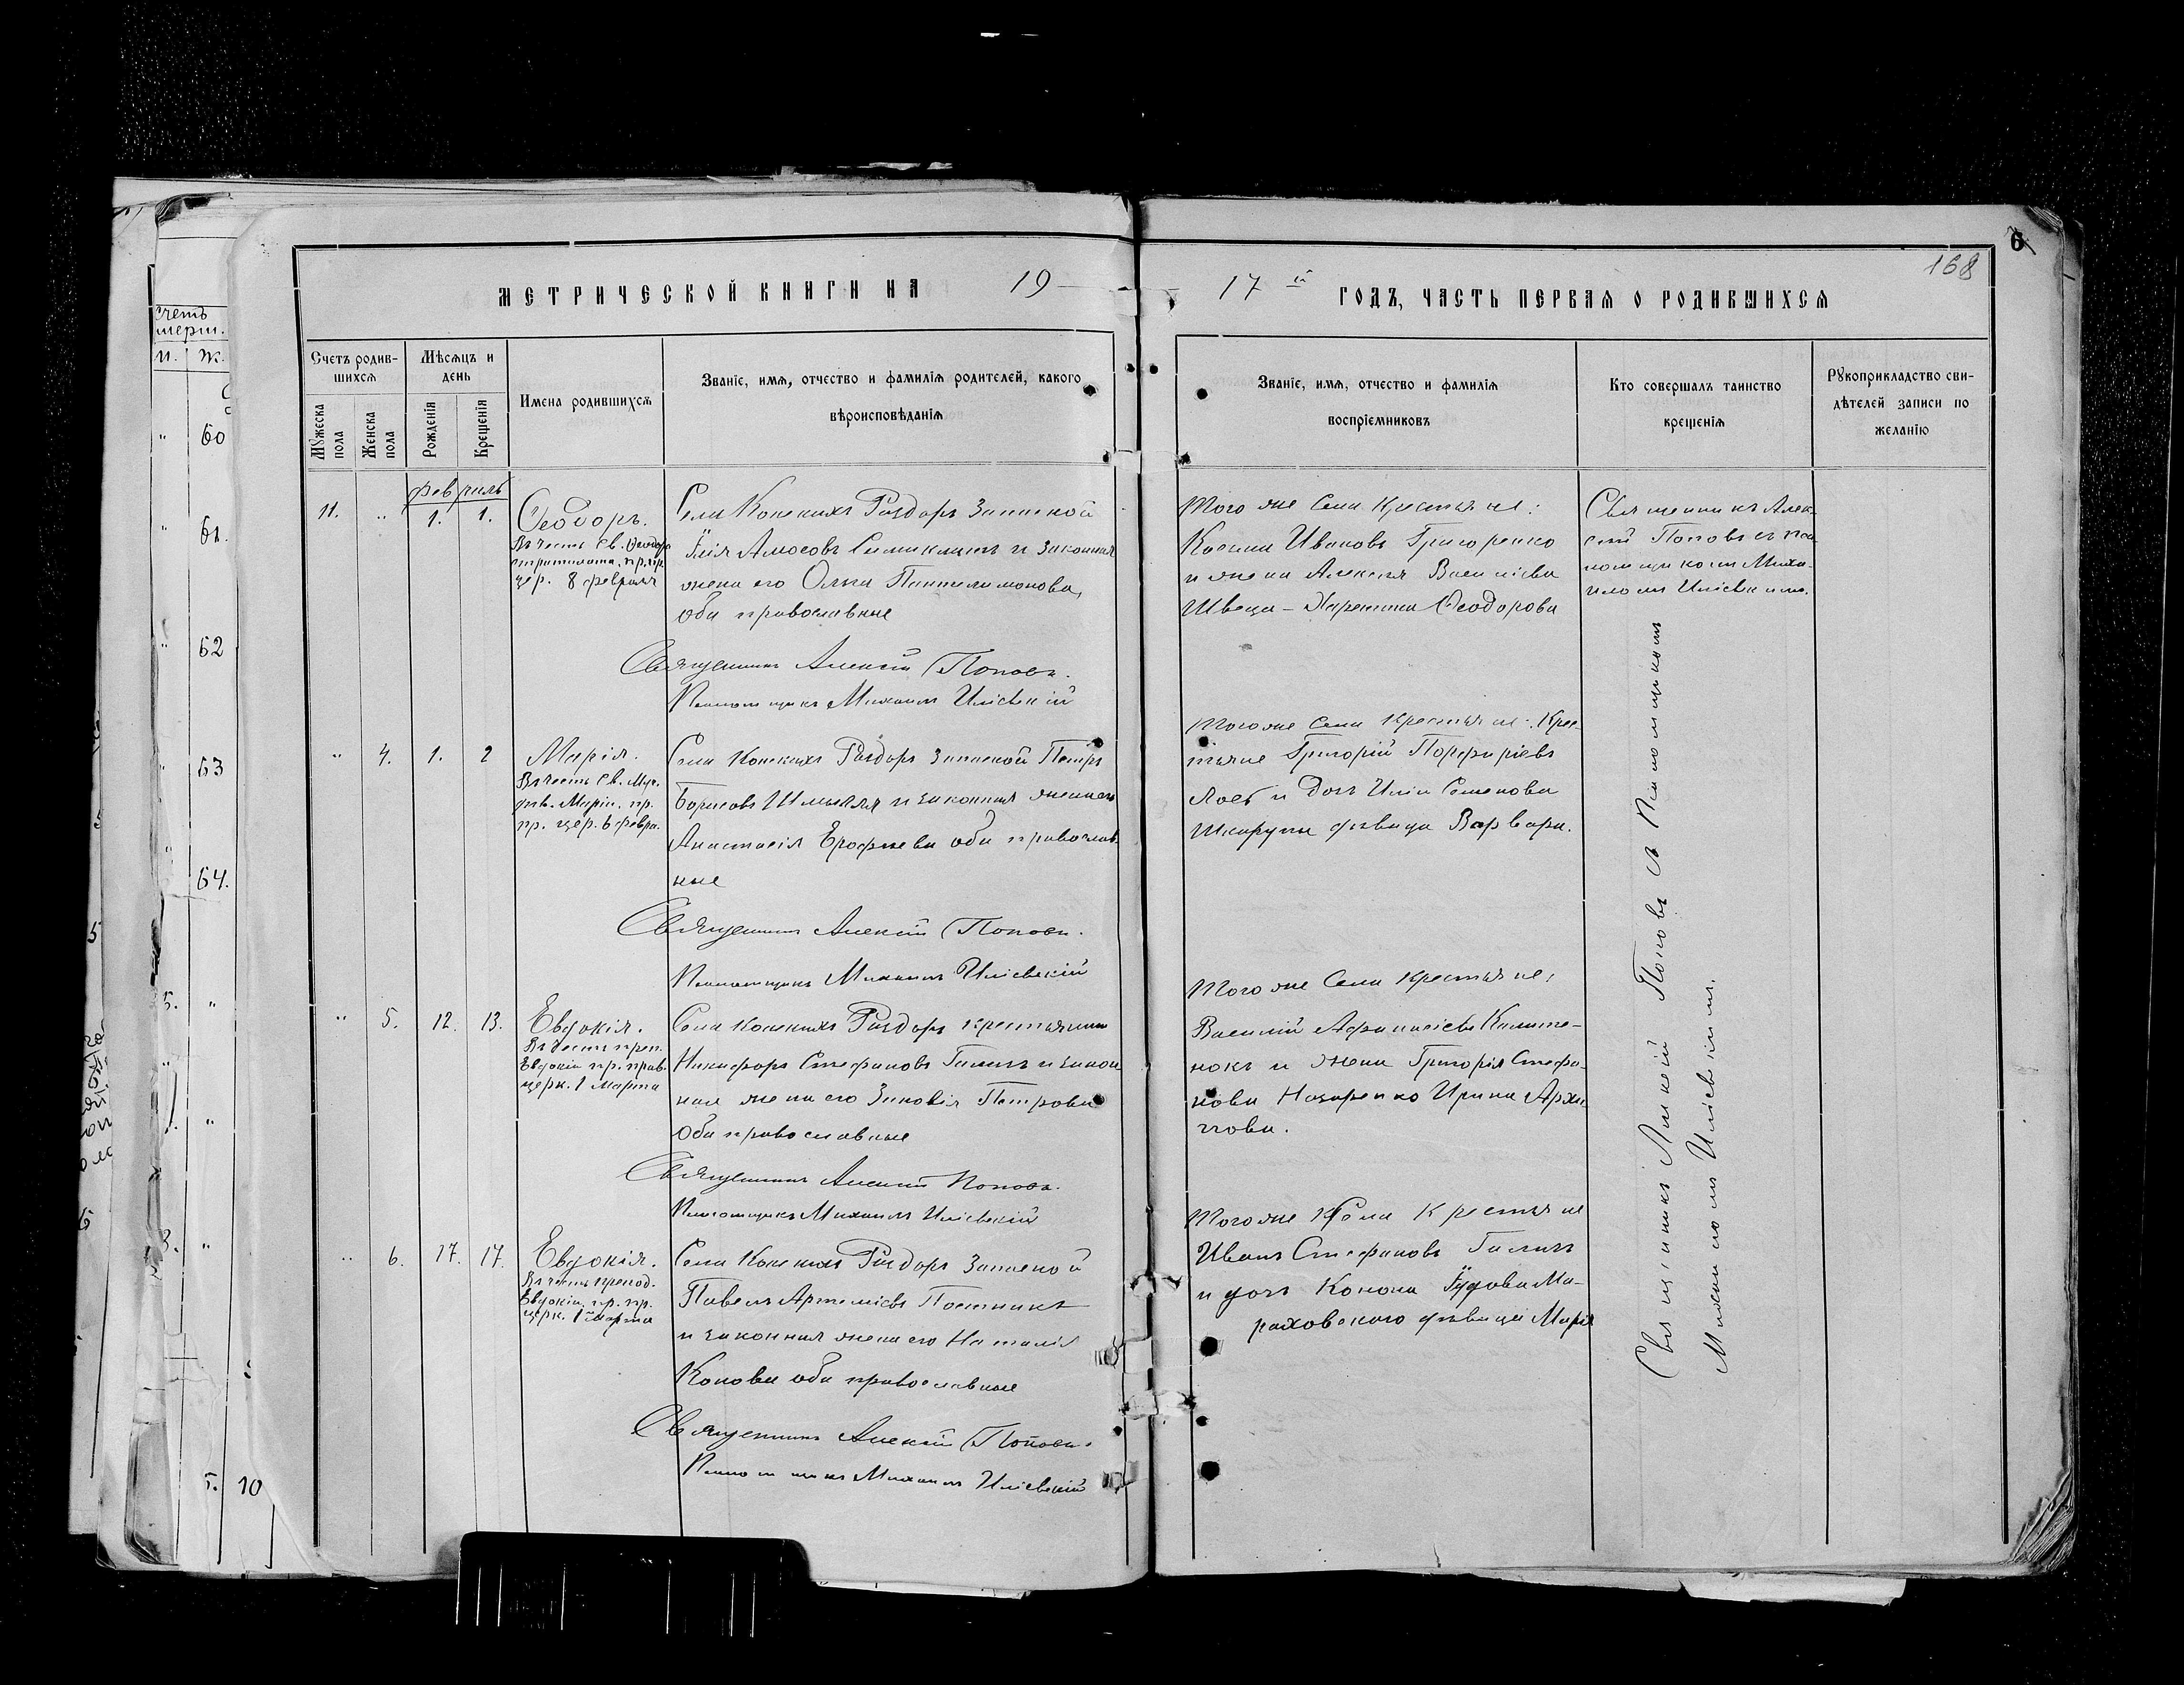 МЕТРИЧЕСКОЙ КНИГИ НА 19
17 й ГОДЪ, ЧАСТЬ ПЕРВАЯ О РОДИВШИХСЯ
6
168
Счетъ родив-
шихся
Мѣсяцъ и
день
Мужеска пола
Женска пола
Рожденія
Крещенія
Имена родившихся
Званіе, имя, отчество и фамилія родителей, какого
вѣроисповѣданія
Званіе, имя, отчество и фамилія
воспріемниковъ
Кто совершалъ таинство
крещенія
Рукоприкладство сви-
дѣтелей записи по
желанію
февраль
11. " 1. 1.
Ѳеодоръ.
Въ честь св. Ѳеодора
стратилата, пр. пр.
цер. 8 февраля
Села Конскихъ Раздоръ Запасной
Илія Амосовъ и законная
жена его Ольга Пантелимонова,
оба православные
Священникъ Алексій Поповъ.
Псаломщикъ Михаилъ Иліевскій
Того же Села Крестьяне:
Косьма Ивановъ Григоренко
и жена Алексѣя Васильева
Швеца - Харетина Ѳеодорова
Священникъ Алек-
сій Поповъ съ пса-
ломщикомъ Миха-
иломъ Иліевскимъ.
" 4. 1. 2
Марія.
Въ честь св. Муч.
дѣв. Маріи, пр.
пр. цер. 6 февра.
Села Конскихъ Раздоръ Запасной Петръ
Борисовъ и законная жена его
Анастасія Ерофеева оба православ-
ные
Священникъ Алексій Поповъ.
Псаломщикъ Михаилъ Иліевскій
Того же Села Крестьяне: Крес-
тьяне Григорій Порфиріевъ
и дочь Иліи Семенова
Шкарупы дѣвица Варвара.
" 5. 12. 13.
Евдокія.
Въ честь преп.
Евдокіи пр. прав.
церк. 1 Марта
Села Конскихъ Раздоръ крестьянинъ
Никифоръ Стефановъ Галичъ и закон-
ная жена его Зиновія Петрова
оба православные
Священникъ Алексій Поповъ.
Псаломщикъ Михаилъ Иліевскій
Того же Села Крестьяне:
Василій Афанасіевъ Калите-
нокъ и жена Григорія Стефа-
нова Назаренко Ирина Архи-
пова.
" 6. 17. 17.
Евдокія.
Въ честь препод.
Евдокіи, пр. пр.
церк. 1 Марта
Села Конскихъ Раздоръ Запасной
Павелъ Артеміевъ Постникъ
и законная жена его Наталія
Конова оба православные
Священникъ Алексій Поповъ.
Псаломщикъ Михаилъ Иліевскій
Того же Села Крестьяне
Иванъ Стефановъ Галичъ
и дочь Конона Іудова Ма-
раховского дѣвица Марія
Священникъ Алексій Поповъ съ Псаломщикомъ
Михаиломъ Иліевскимъ.